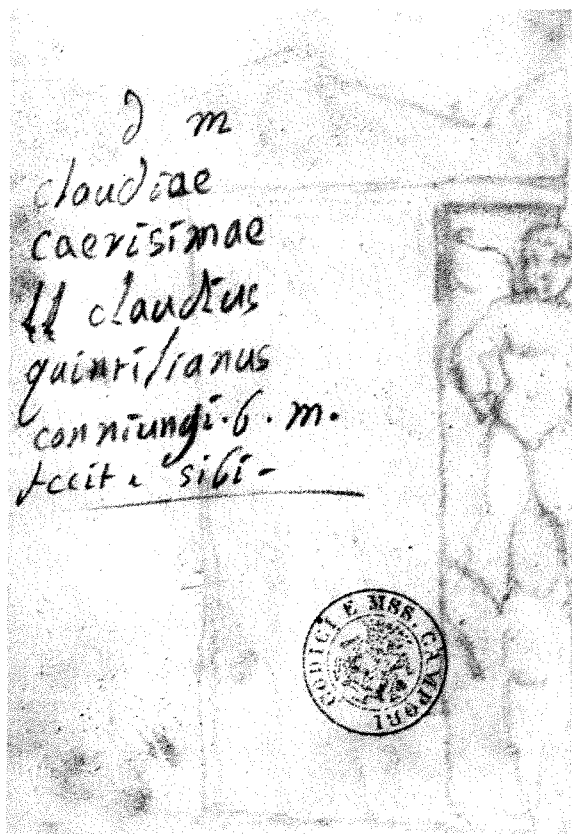 d m
claudiae
caerisimae
claudius
quintilianus
conniungi · b · m ·
fecit · sibi -
CODICI E MSS. CAMPORI